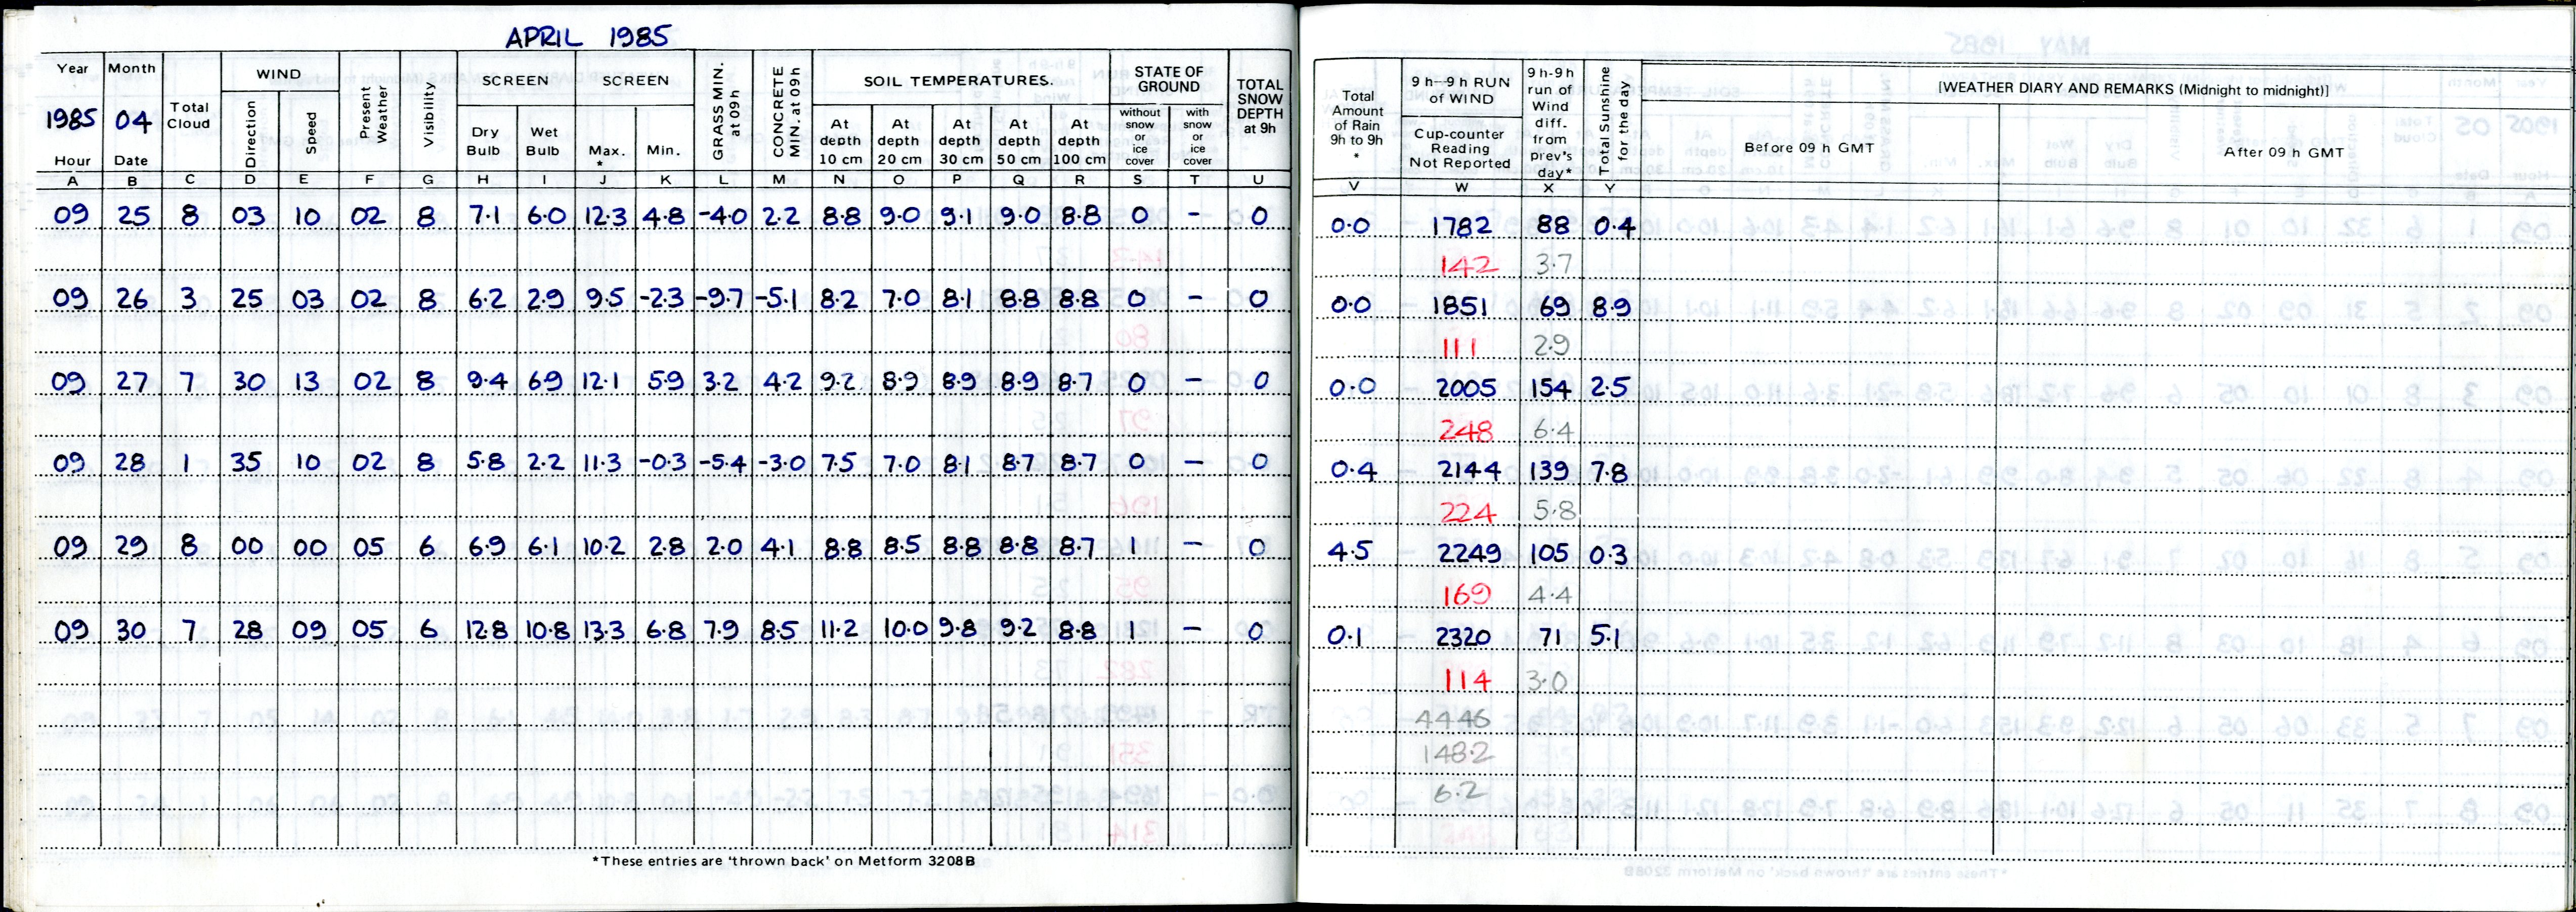 APRIL 1985
Year Month Total Cloud WIND Present Weather Visibility SCREEN SCREEN GRASS MIN. at 09h CONCRETE MIN. at 09h SOIL TEMPERATURES. STATE OF GROUND TOTAL SNOW DEPTH at 9h
1985 04 Direction Speed Dry Bulb Wet Bulb Max. * Min. At depth 10 cm At depth 20 cm At depth 30 cm At depth 50 cm At depth 100 cm without snow or ice cover with snow or ice cover
Hour Date
A B C D E F G H I J K L M N O P Q R S T U
09 25 8 03 10 02 8 7.1 6.0 12.3 4.8 -4.0 2.2 8.8 9.0 9.1 9.0 8.8 0 - 0
09 26 3 25 03 02 8 6.2 2.9 9.5 -2.3 -9.7 -5.1 8.2 7.0 8.1 8.8 8.8 0 - 0
09 27 7 30 13 02 8 9.4 6.9 12.1 5.9 3.2 4.2 9.2 8.9 8.9 8.9 8.7 0 - 0
09 28 1 35 10 02 8 5.8 2.2 11.3 -0.3 -5.4 -3.0 7.5 7.0 8.1 8.7 8.7 0 - 0
09 29 8 00 00 05 6 6.9 6.1 10.2 2.8 2.0 4.1 8.8 8.5 8.8 8.8 8.7 1 - 0
09 30 7 28 09 05 6 12.8 10.8 13.3 6.8 7.9 8.5 11.2 10.0 9.8 9.2 8.8 1 - 0
*These entries are 'thrown back' on Metform 3208B
Total Amount of Rain 9h to 9h * 9 h-9 h RUN of WIND 9 h-9h run of Wind diff. from prev's day* Total Sunshine for the day [WEATHER DIARY AND REMARKS (Midnight to midnight)]
Cup-counter Reading Not Reported Before 09 h GMT After 09 h GMT
V W X Y
0.0 1782 88 0.4
142 3.7
0.0 1851 69 8.9
111 2.9
0.0 2005 154 2.5
248 6.4
0.4 2144 139 7.8
224 5.8
4.5 2249 105 0.3
169 4.4
0.1 2320 71 5.1
114 3.0
4446
148.2
6.2